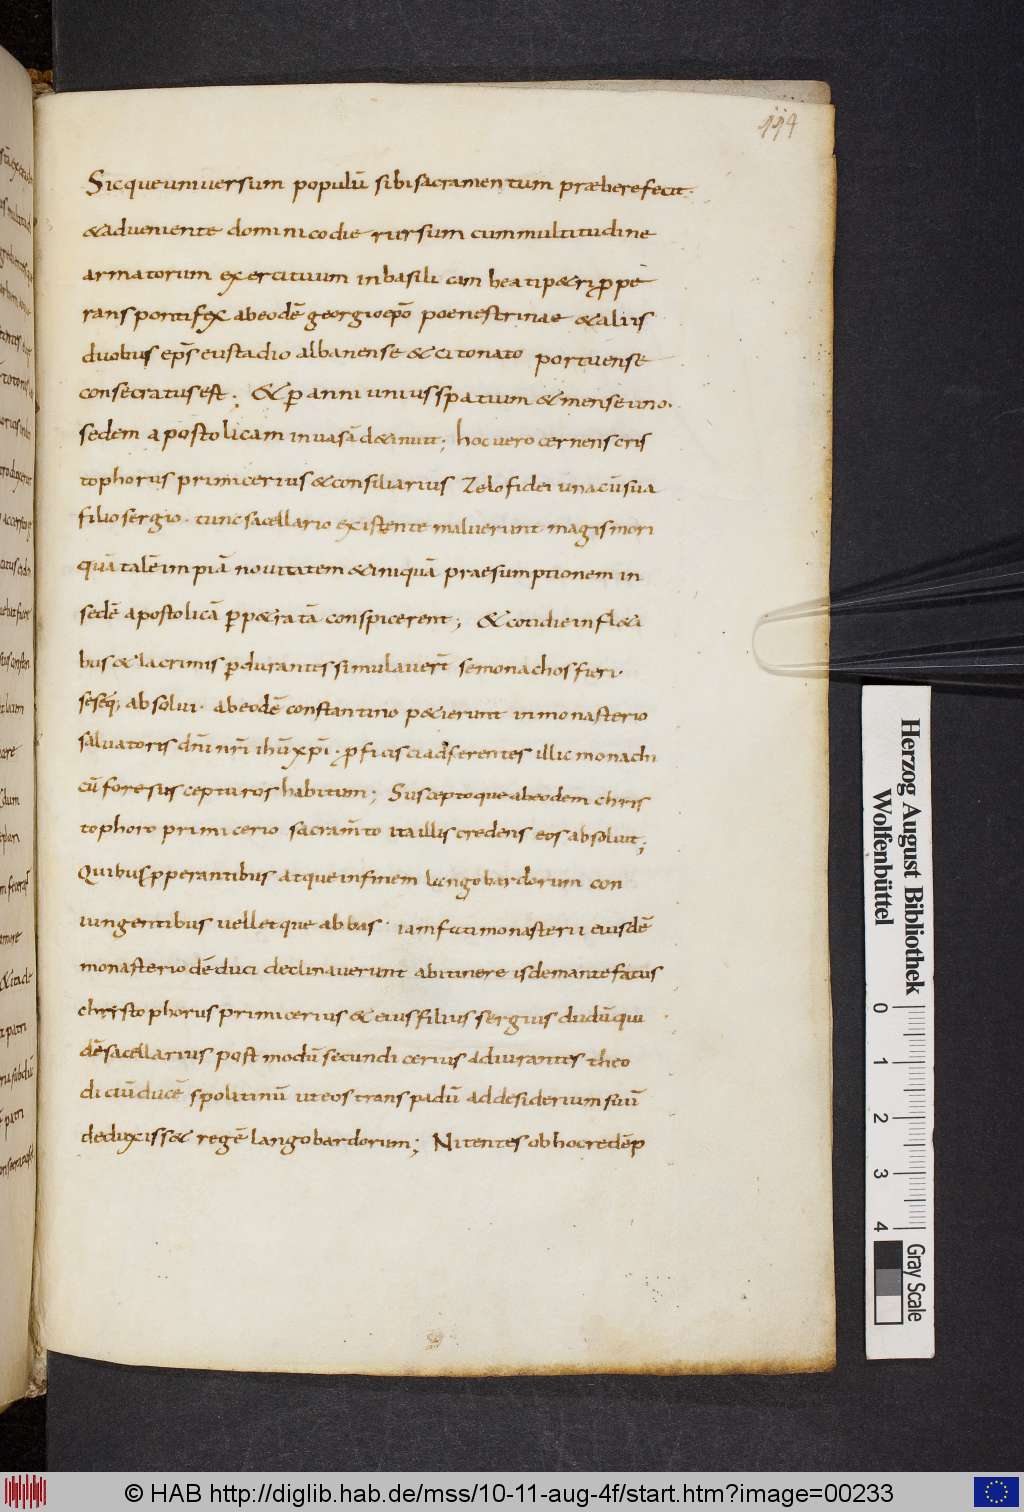 114
Sicque universum populū sibi sacramentum præbere fecit.
& adueniente dominico die rursum cum multitudine
armatorum exercituum in basilicam beati p&ri ꝓpe
rans pontifex ab eodē georgio epō poenestrinae & aliis
duobus ep̄s eustadio albanense & citonato portuense
consecratus est; & ꝑ anni unius spatium & mense uno.
sedem apostolicam inuasā d&inuit; hoc uero cernens cris
tophorus primicerius & consiliarius zelo fidei una cū sua
filio sergio. tunc sacellario existente maluerunt magis mori
quā talē impiā nouitatem & iniquā praesumptionem in
sedē apostolicā ꝑp&ratā conspicerent; & cotidie in fl&i
bus & lacrimis ꝑdurantes simulauer̄t se monachos fieri.
seseq; absolui. ab eodē constantino p&ierunt in monasterio
saluatoris dn̄i nr̄i ihū xp̄i. ꝓficisci adserentes illic monachi
cū fore suscepturos habitum; Susceptoque ab eodem chris
tophoro primicerio sacram̄to ita illis credens eos absoluit;
Quibus ꝓperantibus atque in finem langobardorum con
iungentibus uelletque abbas iam fati monasterii eiusdē
monasterio dē duci declinauerunt ab itinere isdem ante fatus
christophorus primicerius & eius filius sergius dudū qui
dē sacellarius postmodū secundicerius adiurantes theo
diciū ducē spolitinū ut eos trans padū ad desiderium suū
deduxiss& regē langobardorum; Nitentes ob hoc redēp
Herzog August Bibliothek
Wolfenbüttel
0 1 2 3 4
Gray Scale
© HAB http://diglib.hab.de/mss/10-11-aug-4f/start.htm?image=00233